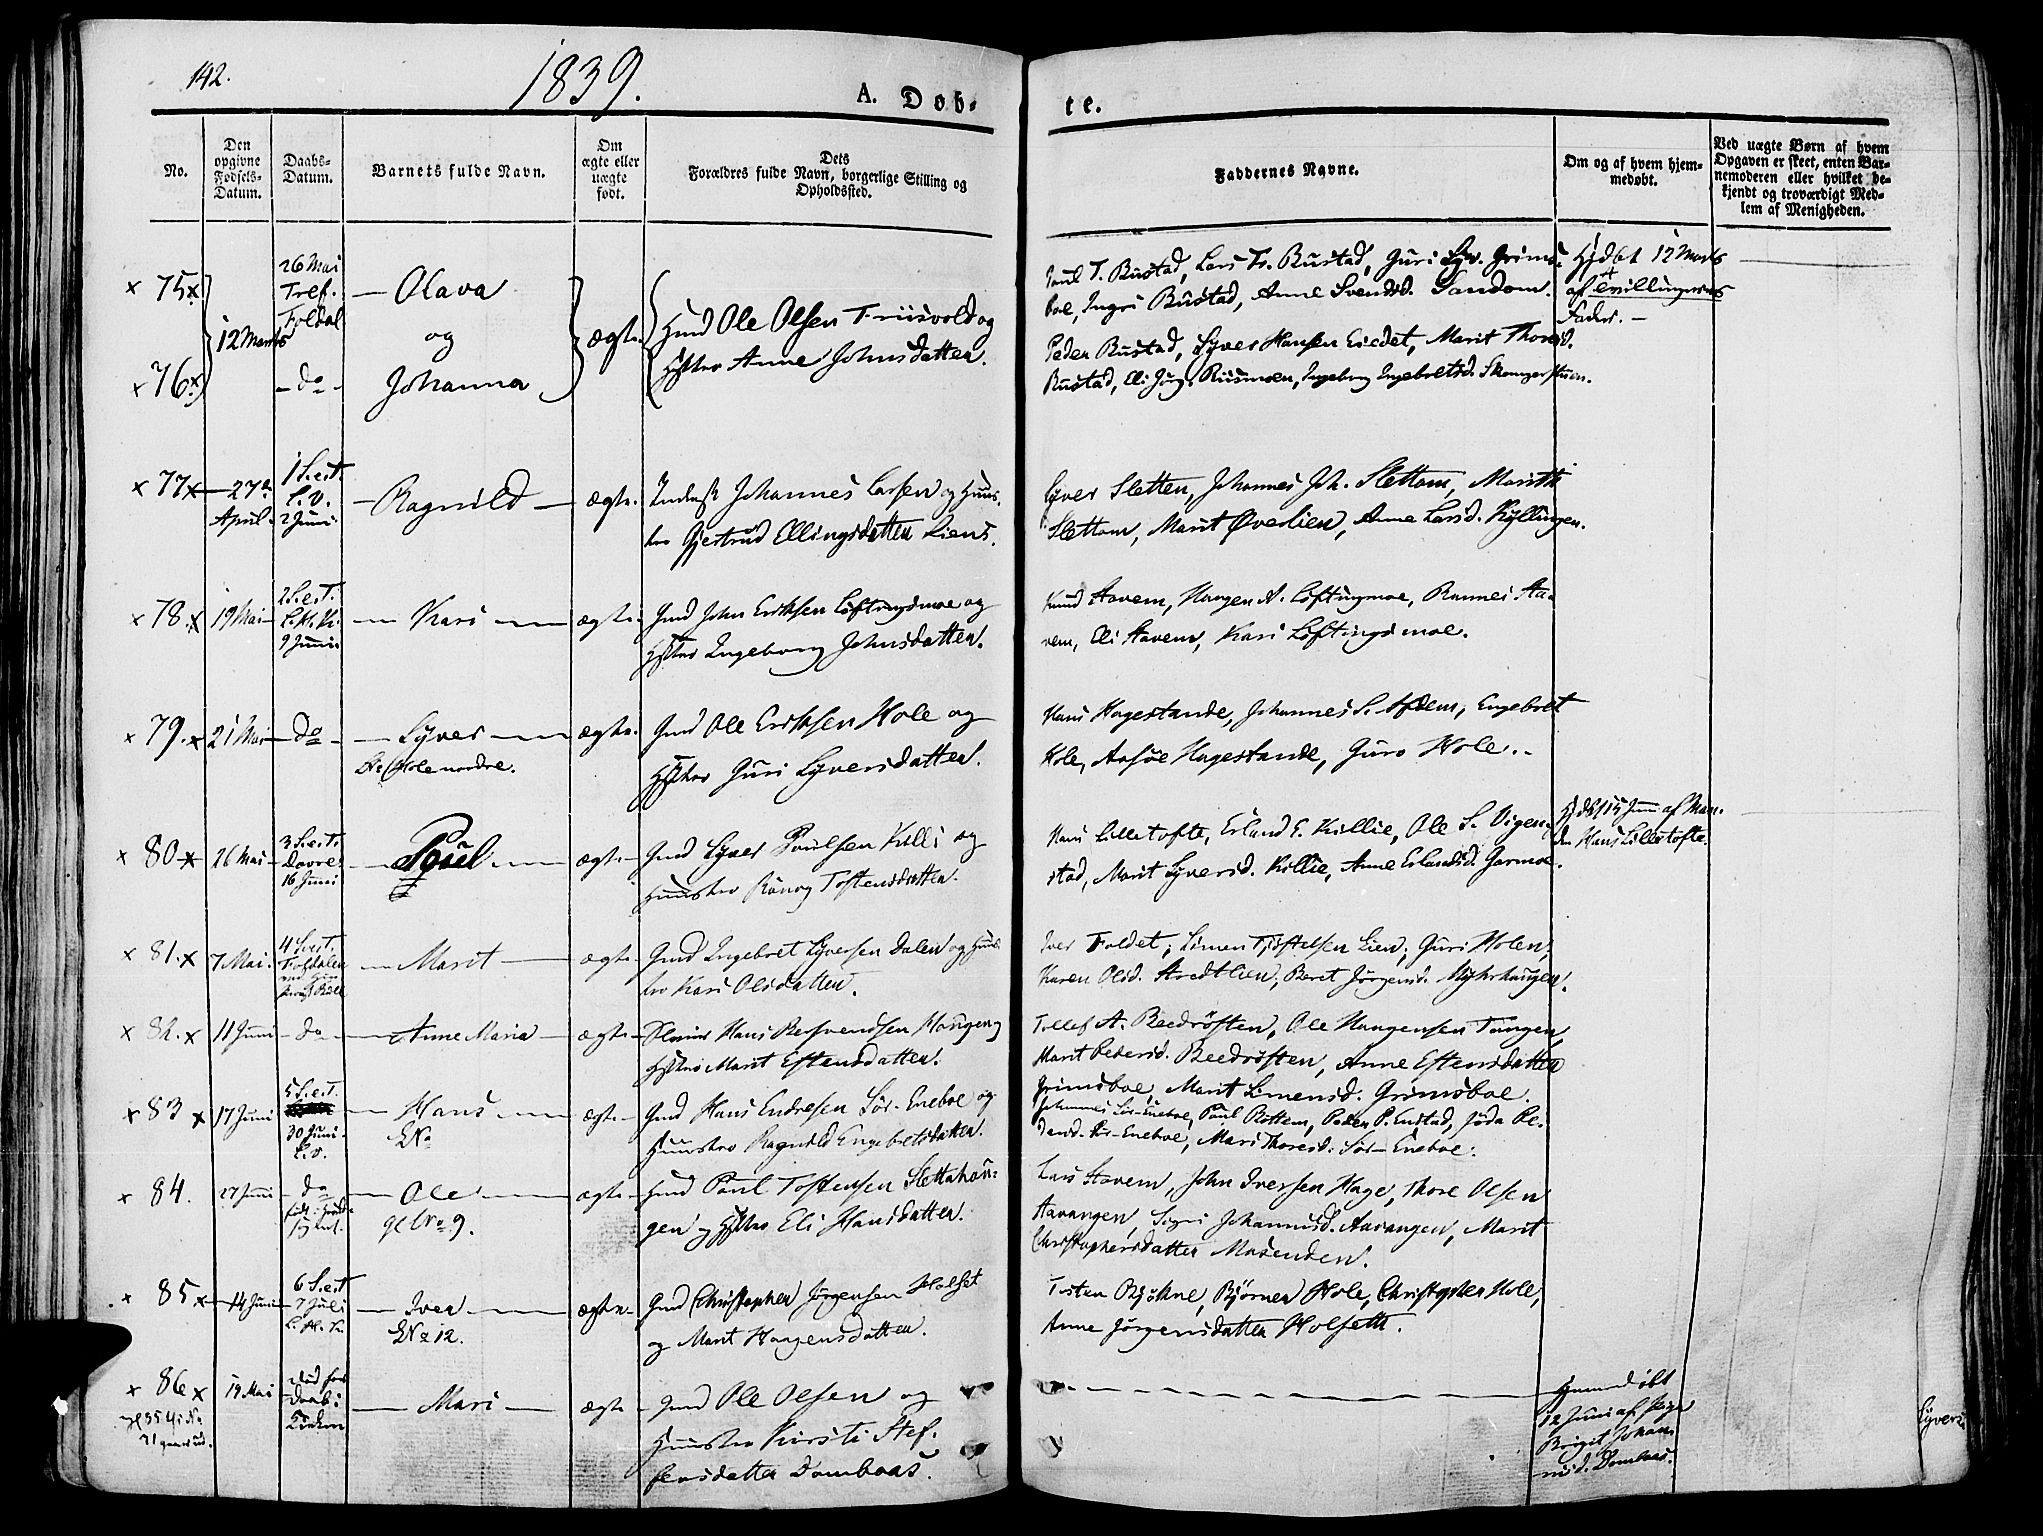 142.
1839.
A. Dob-
te.
No.
Den opgivne Fødsels-Datum.
Daabs-Datum.
Barnets fulde Navn.
Om ægte eller uægte født.
Dets Forældres fulde Navn, borgerlige Stilling og Opholdssted.
Faddernes Navne.
Om og af hvem hjem-
medøbt.
Ved uægte Børn af hvem
Opgaven er skeet, enten Bar-
nemoderen eller hvilket be-
kjendt og troværdigt Med-
lem af Menigheden.
× 75 ×
12 Marts
26 Mai
Tref.
Foldal
Olava
og
× 76 ×
do
Johanna
ægte
Gmd Ole Olsen Triisvold og
Hstro Anne Johnsdatter.
Poul T. Rustad, Lars Tr. Rustad, Guri Syv. Grims-
boe, Ingri Rustad, Anne Svendsd. Sandom.
Peder Rustad, Syver Hansen Eiedet, Marit Thoresd.
Rustad, Eli Jørg. Riismoen, Ingeborg Ingebretsd.
Hjdbt 12 Marts
af tvillingernes
Fader.
× 77 ×
27de
April
1 S. e. t.
L. V.
2 Juni
Ragnild
ægte
Inderst Johannes Larsen og Huus-
tro Gjertrud Ellingsdatter Liens.
Syver Sletten, Johannes Joh. Slettom, Marith
Slettom, Marit Øverlien, Anne Larsd. Kyllingen.
× 78 ×
19 Mai
2 S. e. T.
L. H. K.
9 Juni
Kari
ægte
Gmd John Eriksen Løftingsmoe og
Hstro Ingeborg Johnsdatter.
Knud Stavem, Haagen A. Løftingmoe, Rannei Sta-
vem, Eli Stavem, Kari Løftingsmoe.
× 79 ×
21 Mai
do
Syver
Hole nordre.
ægte
Gmd Ole Eriksen Hole og
Hstro Guri Syversdatter.
Hans Hagestande, Johannes S. Engebret
Hole, Hagestande, Guro Hole.
× 80 ×
26 Mai
3 S. e. t.
Dovre
16 Juni
Poul
ægte
Gmd Syver Poulsen Killi og
Huustro Rønog Tostensdatter.
Hans Lilletofte, Erland E. Killie, Ole S. Vigen-
stad, Marit Syversd. Killie, Anne Erlandsd. Garmoe.
Hjdbt 15 Juni af Man-
den Hans Lilletofte.
× 81. ×
7 Mai
4 S. e. t.
Foldalen
Marit
ægte
Gmd Ingebret Syversen Dalen og Huus-
tro Kari Olsdatter.
Iver Foldet, Simen Tjøstelsen Lien, Guri Holen,
Karen Olsd. Beret Jørgensd.
× 82. ×
11 Juni
do
Anne Maria
ægte
Hans Hougen og
Hstro Marit Estensdatter.
Tollef A. Ole Haagensen Tangen,
Marit Pedersd. Anne Estensdatter
Grimsboe, Marit Simensd. Grimsboe.
× 83 ×
17 Juni
5 S. e. T.
30 Juni
L. V.
Hans
ægte
Gmd Hans Endresen Sør-Eneboe og
Huustro Ragnild Engebretsdatter.
Johannes Sør-Eneboe, Poul Bottem, Peder P. Enstad,
Sør-Eneboe, Mari Thoresd. Sør-Eneboe.
× 84.
27 Juni
do
Ole
9.
ægte
Gmd Poul Tostensen Slettahou-
gen og Hstro Eli Hansdatter.
Lars Stavem, John Iversen Hage, Thore Olsen
Aavangen, Sigri Johannesd. Aavangen, Marit
Christophersdatter
× 85 ×
14 Juni
6 S. e. t
7 Juli
L. H. K.
Iver
12.
ægte
Gmd Christopher Jørgensen Holset
og Marit Haagensdatter.
Tosten Bjøkne, Bjørner Hole, Christopher Hole,
Anne Jørgensdatter Holseth.
× 86 ×
19 Mai
død før
Daab
Mari
ægte
Gmd Ole Olsen og
Huustro Kirsti Stef-
fensdatter Dombaas.
Hjemmedøbt
12 Juni af Pige
Brigit Johan-
nisd. Dombaas.
Syvers